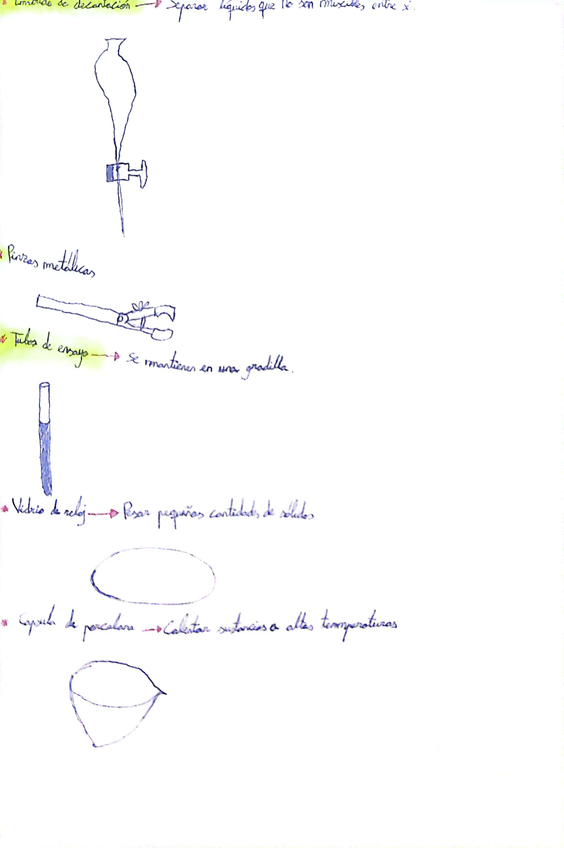 de decantación → Separar líquidos que no son miscibles entre sí.
Pinzas metálicas
* Tubos de ensayo → Se mantienen en una gradilla.
* Vidrio de reloj → Pesar pequeñas cantidades de sólidos
* Capsula de porcelana → Calentar sustancias a altas temperaturas